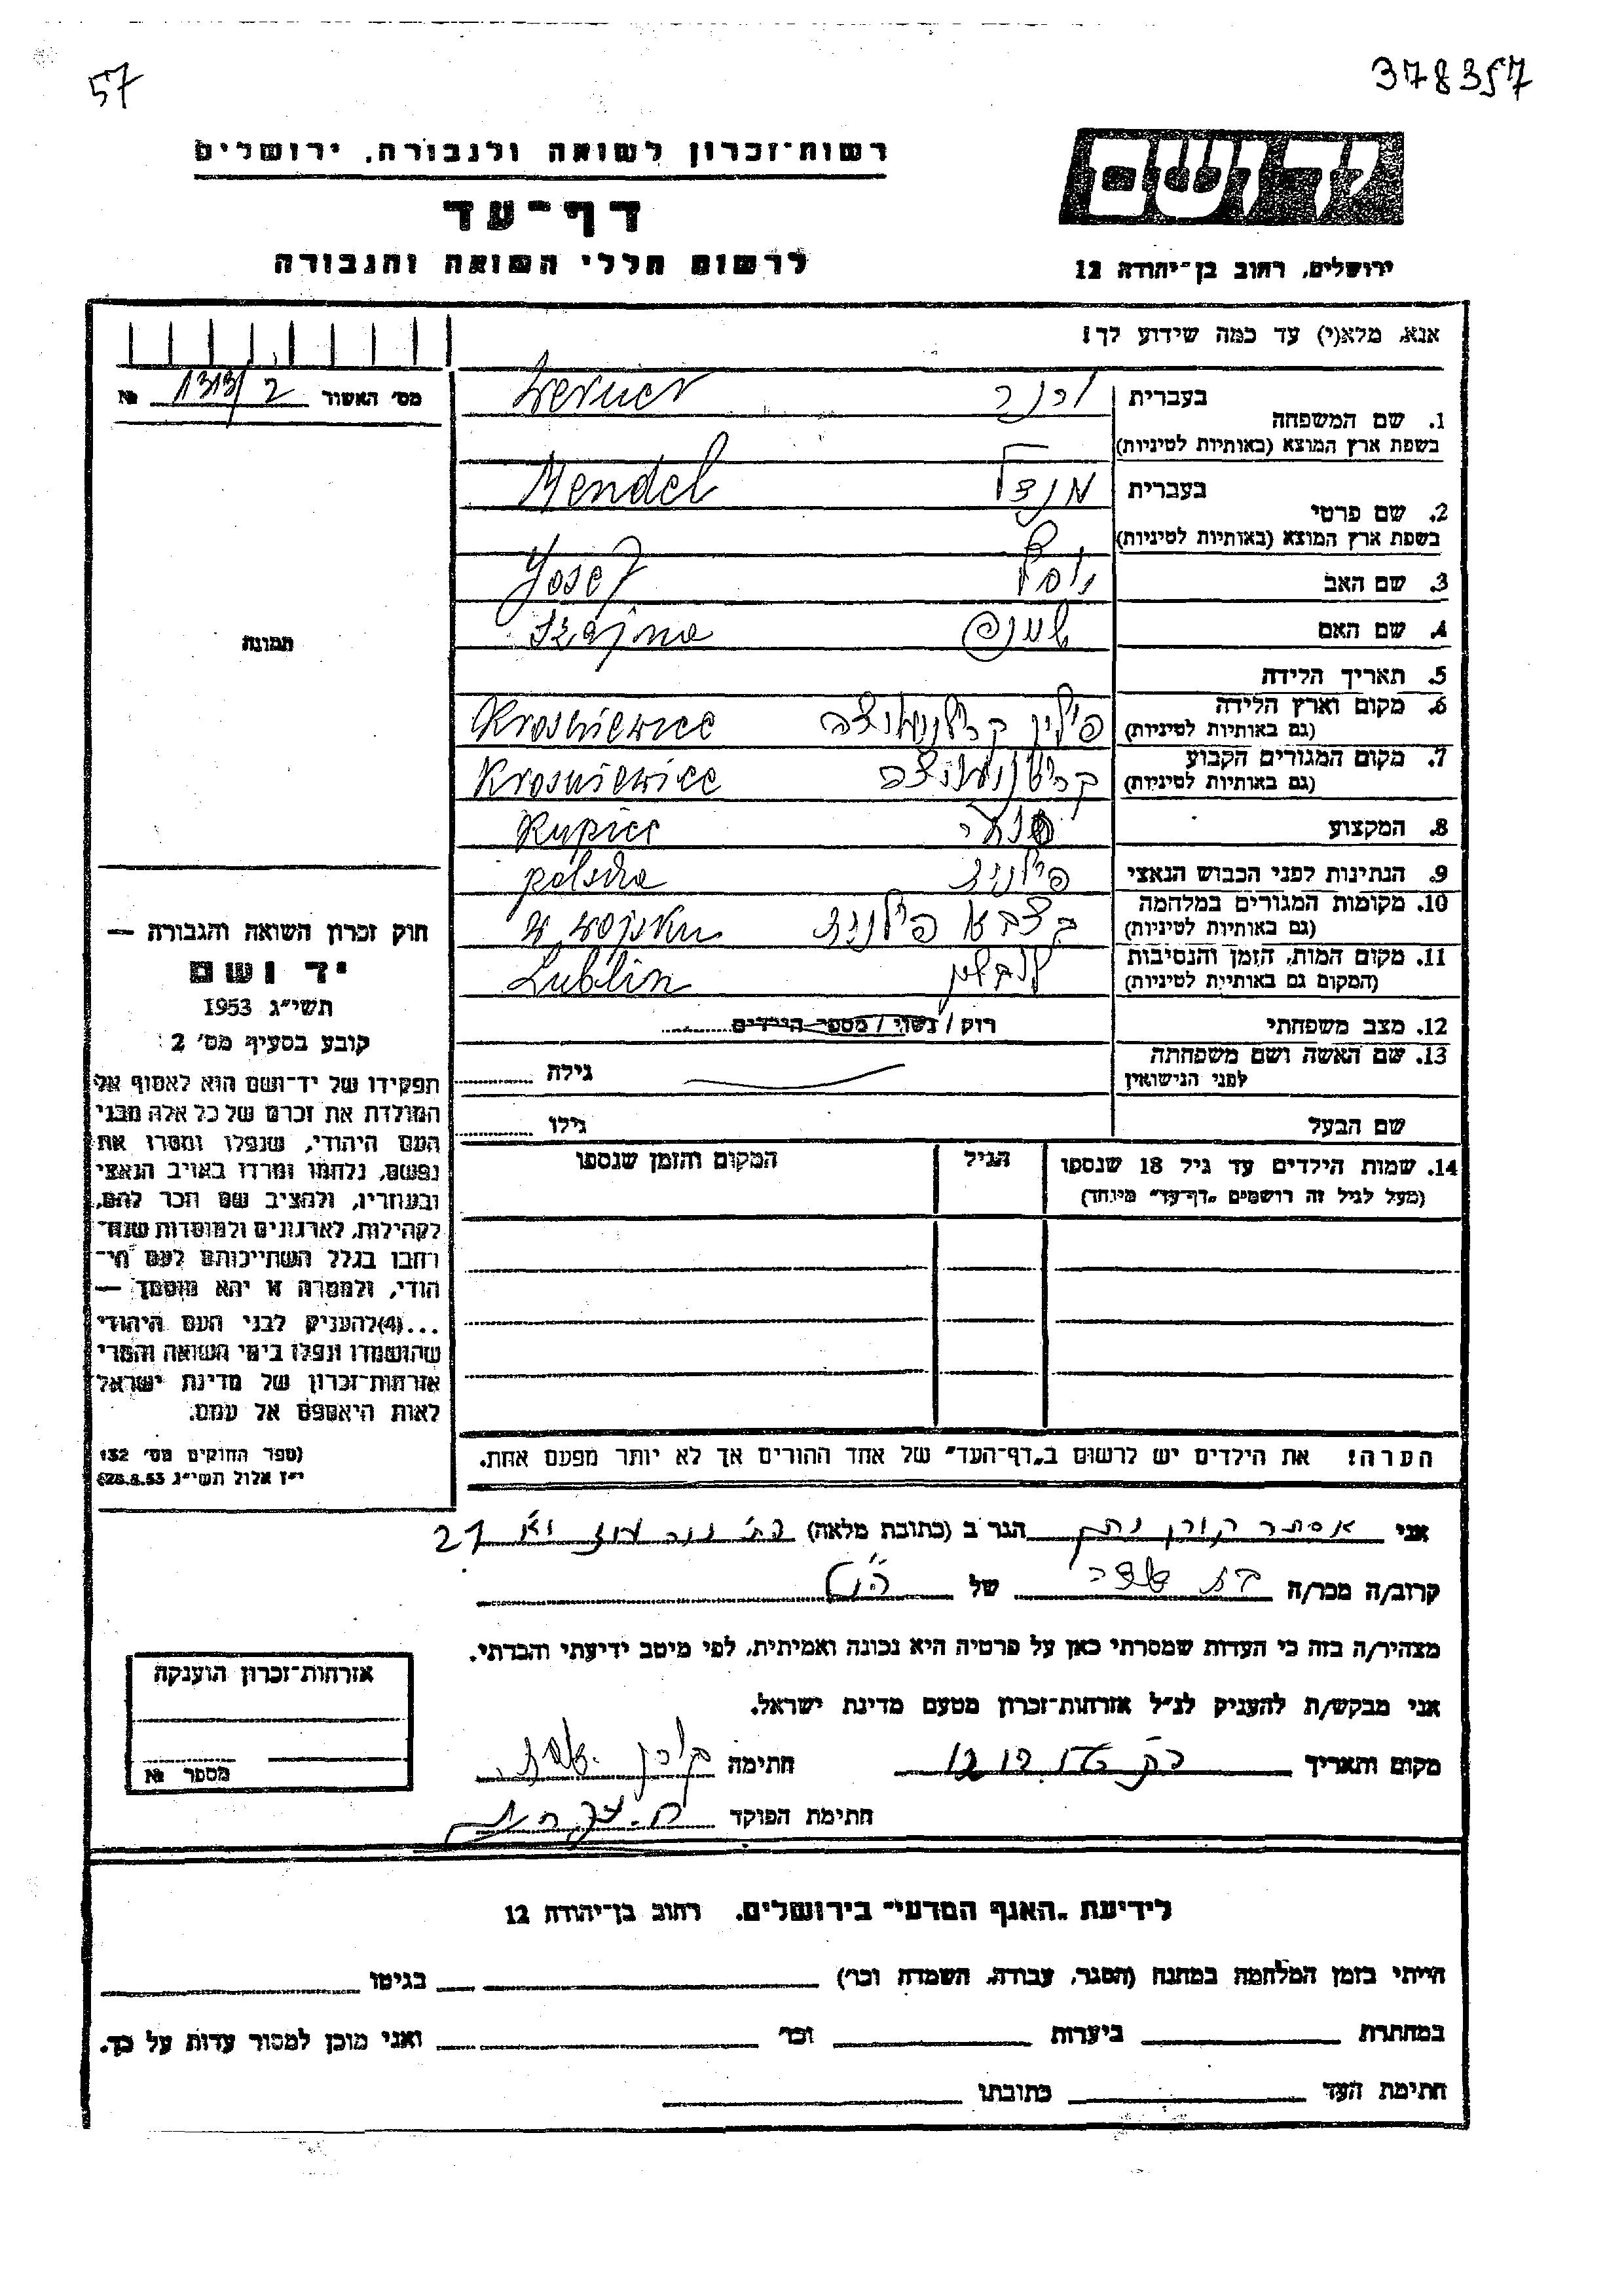 57
378357
רשות־זכרון לשואה ולגבורה, ירושלים
דף־עד
לרשום חללי השואה והגבורה
יד ושם
ירושלים, רחוב בן־יהודה 12
אנא, מלא(י) עד כמה שידוע לך!
מס׳ האשור 1313/2 №
1. שם המשפחה
בעברית ורנר Werner
בשפת ארץ המוצא (באותיות לטיניות)
2. שם פרטי
בעברית מנדל Mendel
בשפת ארץ המוצא (באותיות לטיניות)
3. שם האב יוסף Josef
4. שם האם Szajna
5. תאריך הלידה
6. מקום וארץ הלידה פולין Krosniewice
(גם באותיות לטיניות)
7. מקום המגורים הקבוע Krosniewice
(גם באותיות לטיניות)
8. המקצוע Kupiec
9. הנתינות לפני הכבוש הנאצי פולנית polska
10. מקומות המגורים במלחמה בצבא פולנית w wojsku
(גם באותיות לטיניות)
11. מקום המות, הזמן והנסיבות לובלין Lublin
(המקום גם באותיות לטיניות)
12. מצב משפחתי רוק / נשוי / מספר הילדים
13. שם האשה ושם משפחתה גילה
לפני הנישואין
שם הבעל גילו
14. שמות הילדים עד גיל 18 שנספו הגיל המקום והזמן שנספו
(מעל לגיל זה רושמים „דף־עד״ מיוחד)
הערה! את הילדים יש לרשום ב„דף־העד״ של אחד ההורים אך לא יותר מפעם אחת.
תמונה
חוק זכרון השואה והגבורה —
יד ושם
תשי״ג 1953
קובע בסעיף מס׳ 2:
תפקידו של יד־ושם הוא לאסוף אל
המולדת את זכרם של כל אלה מבני
העם היהודי, שנפלו ומסרו את
נפשם, נלחמו ומרדו באויב הנאצי
ובעוזריו, ולהציב שם וזכר להם,
לקהילות, לארגונים ולמוסדות שנח־
רבו בגלל השתייכותם לעם הי־
הודי, ולמטרה זו יהא מוסמך —
...(4)להעניק לבני העם היהודי
שהושמדו ונפלו בימי השואה והמרי
אזרחות־זכרון של מדינת ישראל
לאות היאספם אל עמם.
(ספר החוקים מס׳ 132
י״ז אלול תשי״ג 28.8.53)
אני אסתר קורן הגר ב (כתובת מלאה) 27
קרוב/ה מכר/ה של
מצהיר/ה בזה כי העדות שמסרתי כאן על פרטיה היא נכונה ואמיתית, לפי מיטב ידיעתי והכרתי.
אני מבקש/ת להעניק לנ״ל אזרחות־זכרון מטעם מדינת ישראל.
מקום ותאריך חתימה קורן אסתר
חתימת הפוקד
אזרחות־זכרון הוענקה
מספר №
לידיעת „האגף המדעי״ בירושלים, רחוב בן־יהודה 12
הייתי בזמן המלחמה במחנה (הסגר, עבודה, השמדה וכו׳) בגיטו
במחתרת ביערות וכו׳ ואני מוכן למסור עדות על כך.
חתימת העד כתובתו